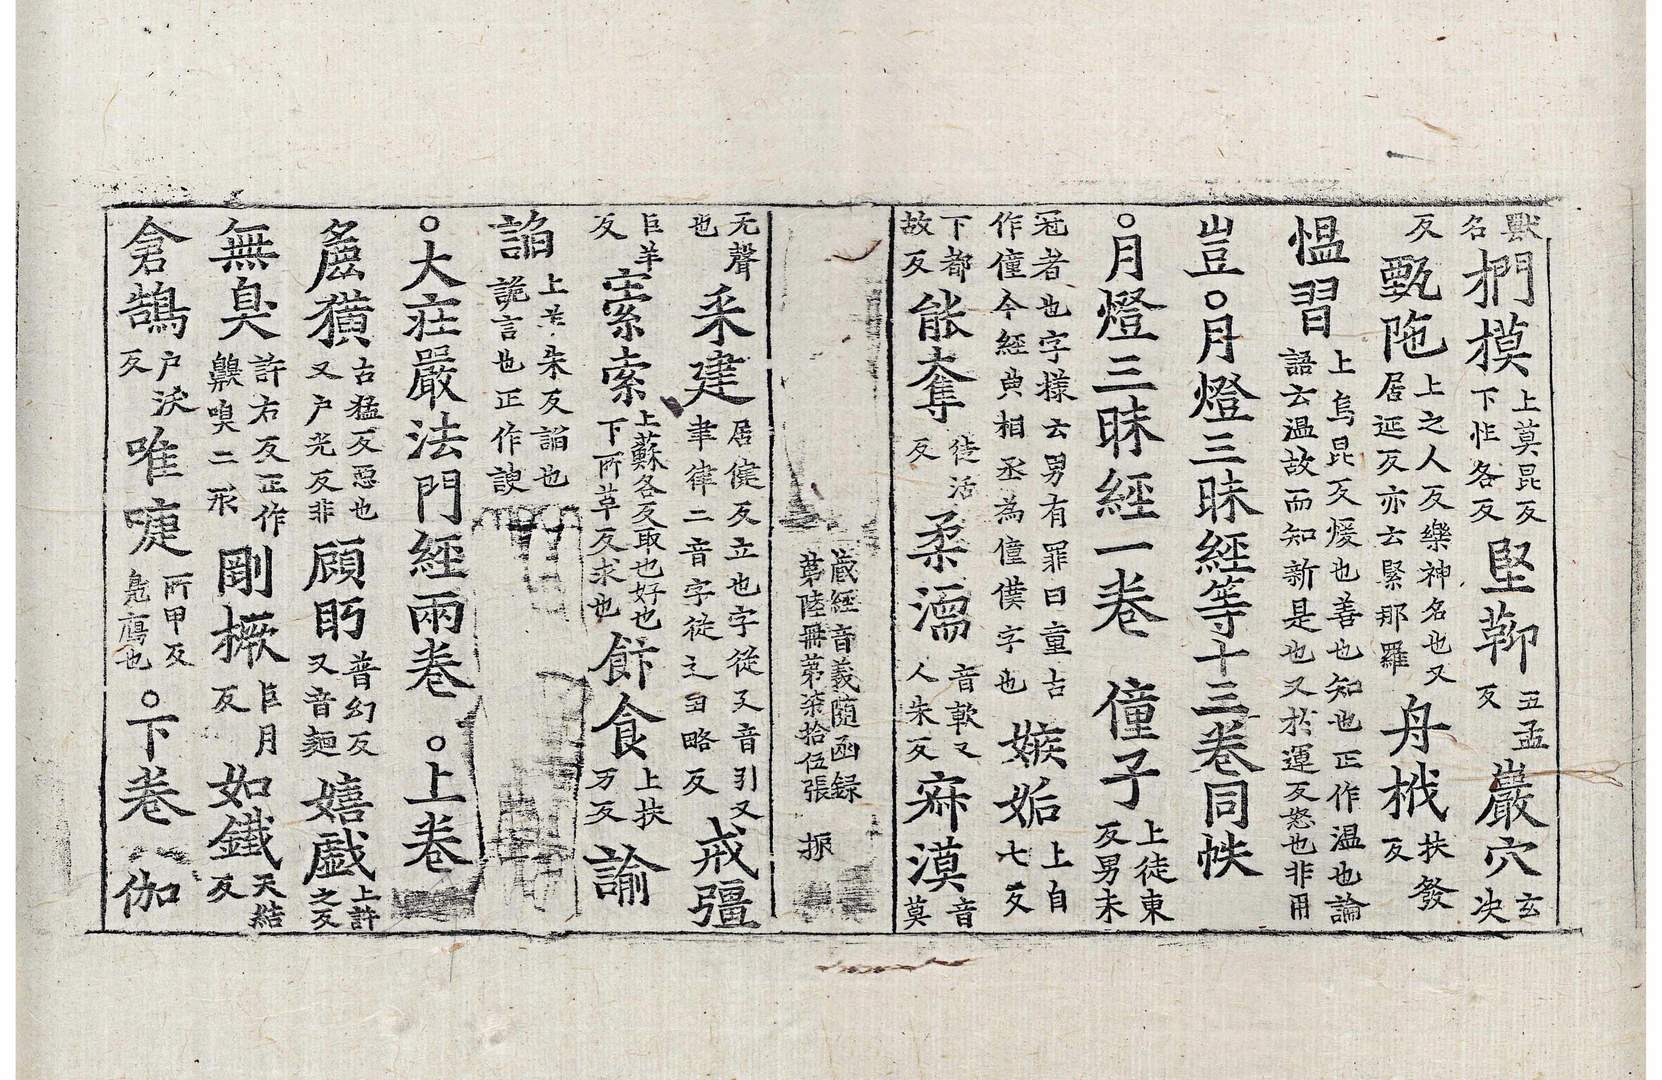 獸名捫摸上莫昆反下忙各反堅䩕五孟反巖穴玄決
反甄陁上之人反樂神名也又居延反亦云緊那羅舟栰扶發反
愠習上烏昆反煖也善也知也正作温也論語云温故而知新是也又於運反怒也非用
豈○月燈三昧經等十三卷同帙
○月燈三昧經一卷 僮子上徒東反男未
冠者也字樣云男有罪曰童古作僮今經典相丞為僮僕字也嫉妬上自七反
下都故反能奪徒活反柔濡音軟又人朱反寂漠音莫
藏經音義隨函録第陸冊第柒拾伍張 振
无聲也釆建居健反立也字從廴音引又聿律二音字從之丑略反戒彊
巨羊反索索上蘇各反取也好也下所草反求也飰食上扶万反諭
諂上丑朱反諂也詭言也正作諛
○大莊嚴法門經兩卷 ○上卷
麁獷古猛反惡也又户光反非顧眄普幻反又音麵嬉戲上許之反
無臭許右反正作齅嗅二形剛橛巨月反如鐵天結反
倉鵠户沃反唯唼所甲反鳧鴈也○下卷 伽